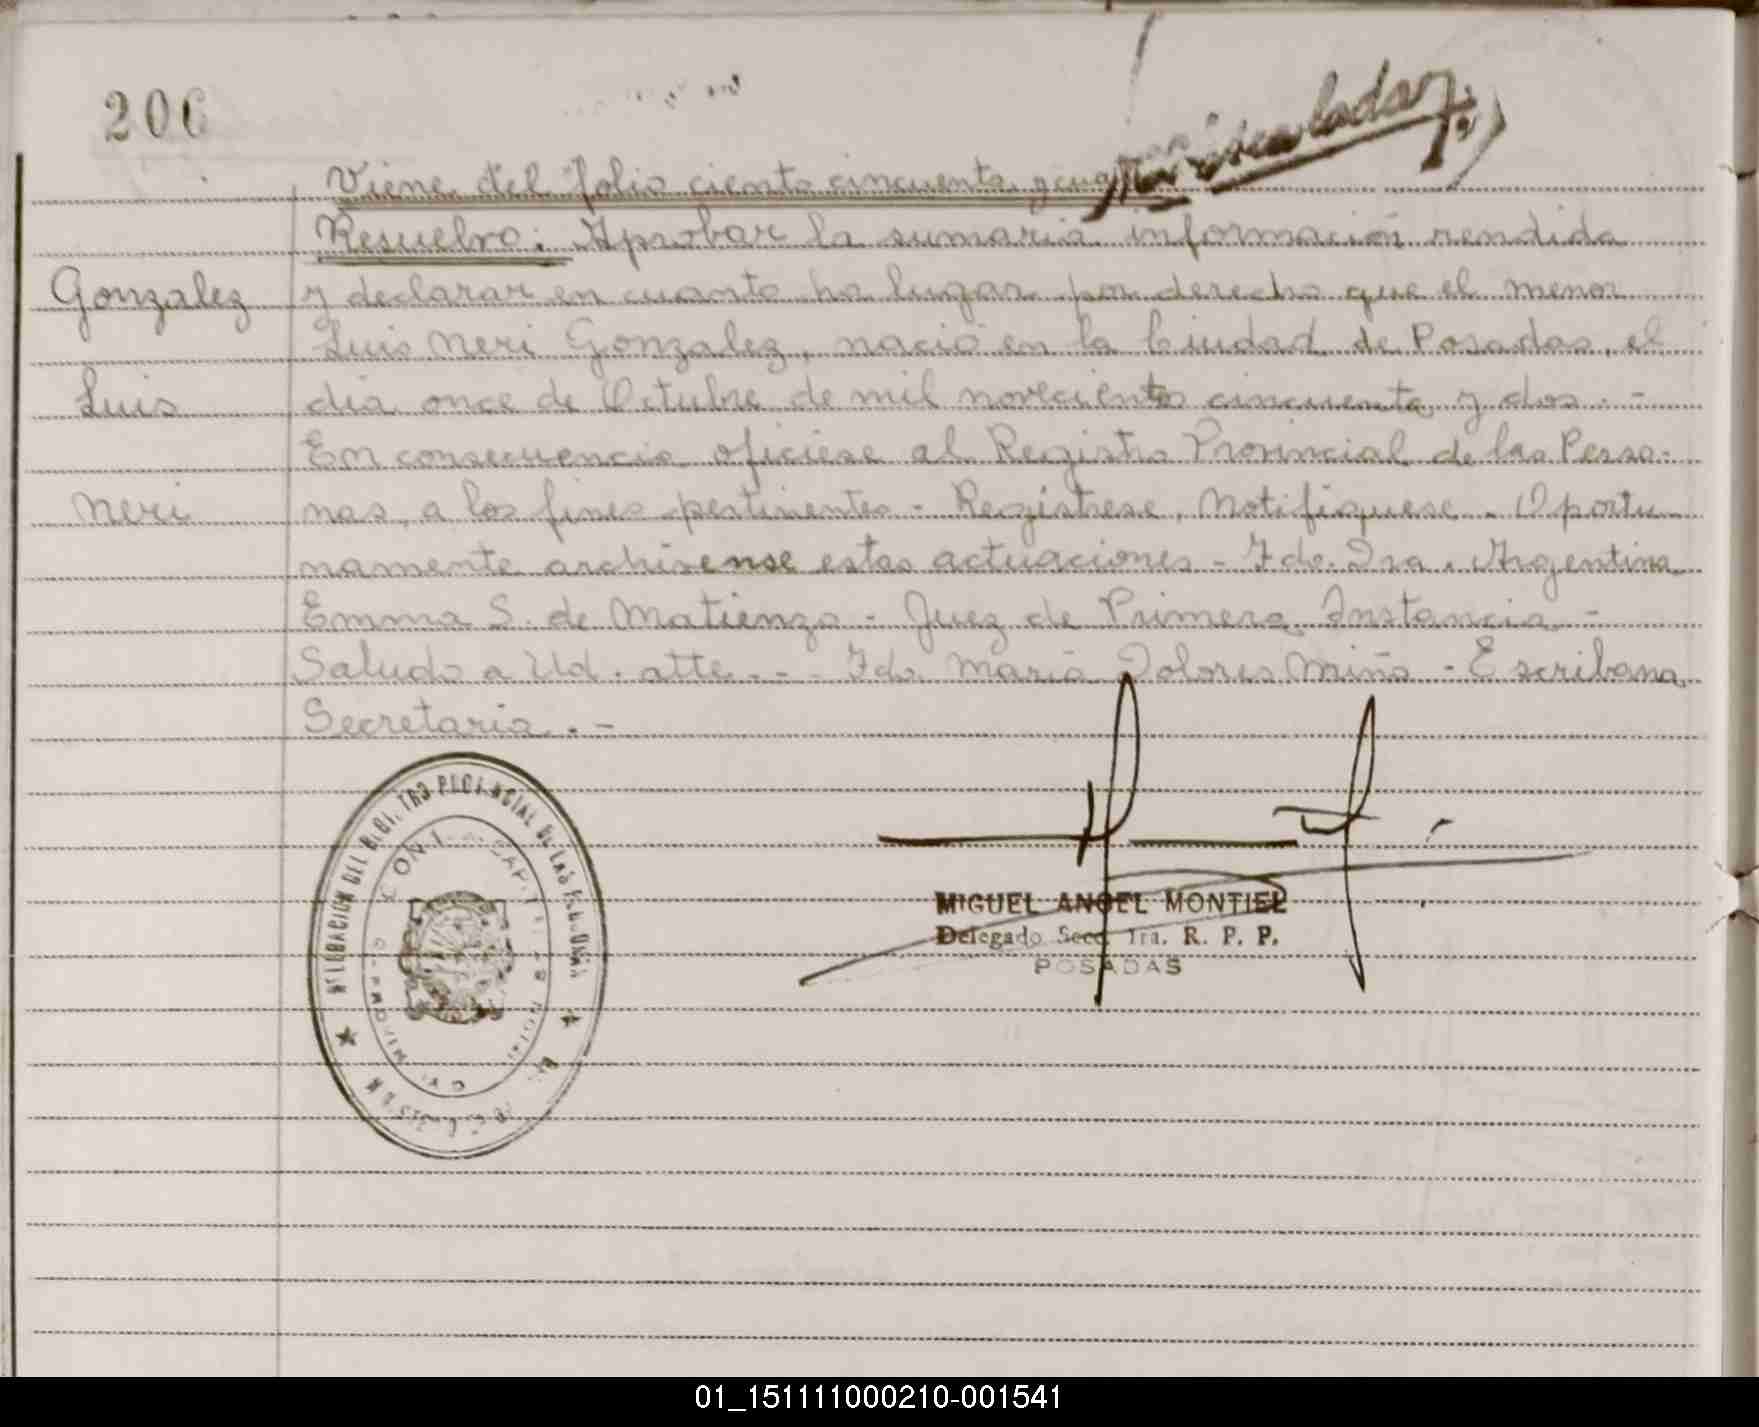 206
Viene del folio ciento cincuenta y
Resuelvo: Aprobar la sumaria información rendida
Gonzalez
y declarar en cuanto ha lugar por derecho que el menor
Luis Neri Gonzalez, nació en la Ciudad de Posadas, el
Luis
dia once de Octubre de mil novecientos cincuenta y dos. -
En consecuencia oficiese al Registro Provincial de las Perso-
Neri
nas, a los fines pertinentes - Registrese, Notifiquese. Oportu-
namente archivense estas actuaciones - Fdo. Dra. Argentina
Emma S. de Matienzo - Juez de Primera Instancia -
Saludo a Ud. atte. - - Fdo. Maria Dolores Miño - Escribana
Secretaria. -
MIGUEL ANGEL MONTIEL
Delegado Secc. 1ra. R. P. P.
POSADAS
01_151111000210-001541